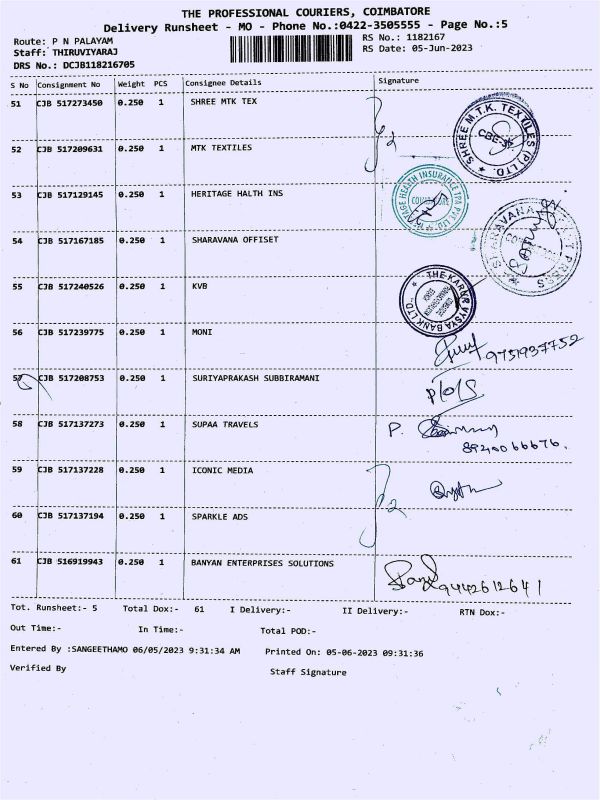 THE PROFESSIONAL COURIERS, COIMBATORE
Delivery Runsheet - MO - Phone No.:0422-3505555 - Page No.:5
Route: P N PALAYAM
RS No.: 1182167
Staff: THIRUVIYARAJ
RS Date: 05-Jun-2023
DRS No.: DCJB118216705
S No Consignment No Weight PCS Consignee Details Signature
51 CJB 517273450 0.250 1 SHREE MTK TEX
52 CJB 517209631 0.250 1 MTK TEXTILES
53 CJB 517129145 0.250 1 HERITAGE HALTH INS
54 CJB 517167185 0.250 1 SHARAVANA OFFISET
55 CJB 517240526 0.250 1 KVB
56 CJB 517239775 0.250 1 MONI
9751937752
57 CJB 517208753 0.250 1 SURIYAPRAKASH SUBBIRAMANI
58 CJB 517137273 0.250 1 SUPAA TRAVELS
59 CJB 517137228 0.250 1 ICONIC MEDIA
60 CJB 517137194 0.250 1 SPARKLE ADS
61 CJB 516919943 0.250 1 BANYAN ENTERPRISES SOLUTIONS
9442612641
Tot. Runsheet:- 5 Total Dox:- 61 I Delivery:- II Delivery:- RTN Dox:-
Out Time:- In Time:- Total POD:-
Entered By :SANGEETHAMO 06/05/2023 9:31:34 AM Printed On: 05-06-2023 09:31:36
Verified By Staff Signature
SHREE M.T.K. TEXTILES (P) LTD.
CBE-35
THE KARUR VYSYA BANK LTD.